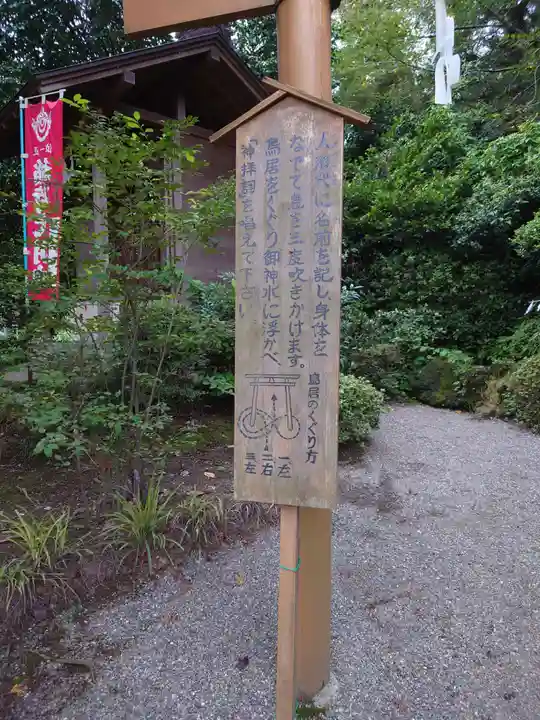 人形代に名前を記し、身体を
なでて息を三度吹きかけます。
鳥居をくぐり御神水に浮かべ、
「神拝詞を唱えて下さい
鳥居のくぐり方
一左
二右
三左